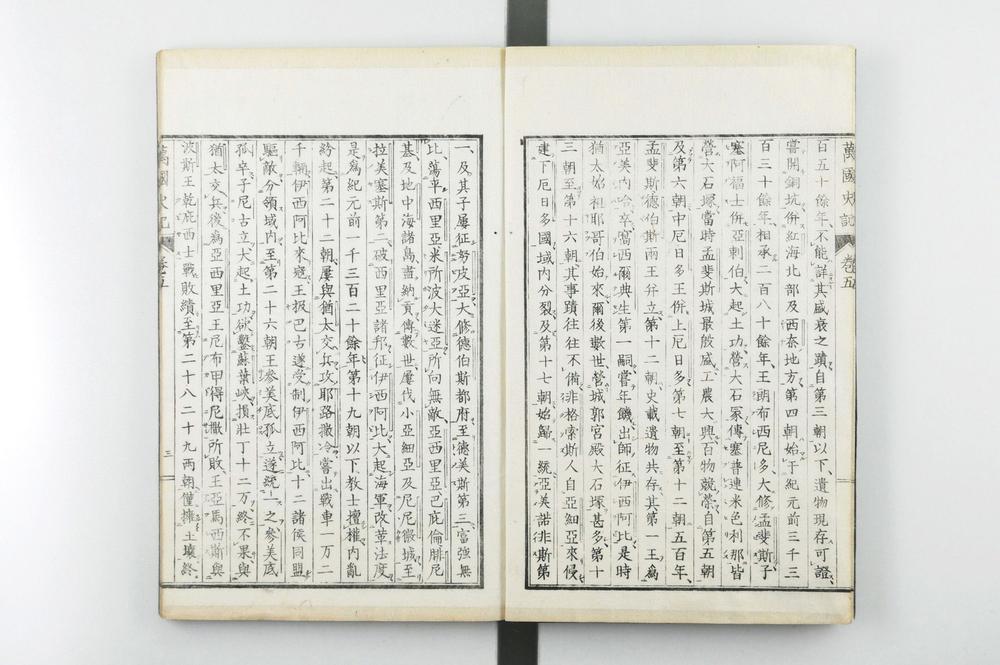 萬國史記 卷五
百五十餘年、不能詳其盛衰之蹟、自第三朝以下、遺物現存可證、
嘗開銅坑、併紅海北部及西奈地方、第四朝始于紀元前三千三
百三十餘年、王相承二百八十餘年、王朗布西尼多、大修孟斐斯、子
塞阿福士、併亞剌伯、大起土功、營大石冢、傳塞普連米色利那、皆
營大石塚、當時孟斐斯城最殷盛、工農大興、百物競榮、自第五朝
及第六朝、中尼日多王併上尼日多、第七朝至第十二朝五百年、
孟斐斯德伯斯兩王并立、第十二朝、史載遺物共存、其第一王爲
亞美內哈、卒、窩西爾典生第一嗣、嘗年饑、出師征伊西阿比、是時
猶太始祖耶哥伯始來、爾後數世、營城郭宮殿大石塚甚多、第十
三朝至第十六朝、其事蹟往往不備、非格索斯人自亞細亞來侵、
建下厄日多國、域內分裂、及第十七朝、始歸一統、亞美諾非斯第
一、及其子屢征努皮亞、大修德伯斯都府、至德美斯第三、富強無
比、蕩平西里亞、米所波大迷亞、所向無敵、亞西里亞、巴庇倫、腓尼
基、及地中海諸島、盡納貢、傳數世、屢伐小亞細亞及尼尼微城、至
拉美塞斯第二、破西里亞諸邦、征伊西阿比、大起海軍、改革法度、
是爲紀元前一千三百二十餘年、第十九朝以下、教士擅權、內亂
紛起、第二十二朝、屢與猶太交兵、攻耶路撒冷、嘗出戰車一万二
千輛、伊西阿比來寇、王极巴古、遂受制伊西阿比、十二諸侯同盟
驅敵、分領域內、至第二十六朝、王參美底孤立、遂統一之、參美底
孤卒、子尼古立、大起土功、欲鑿蘇葉峽、損壯丁十二万、終不果、與
猶太交兵、後爲亞西里亞王尼布甲得尼撒所敗、王亞馬西斯與
波斯王乾庇西士戰、敗績、至第二十八二十九兩朝、僅擁土壤、終
萬國史記 卷五 三